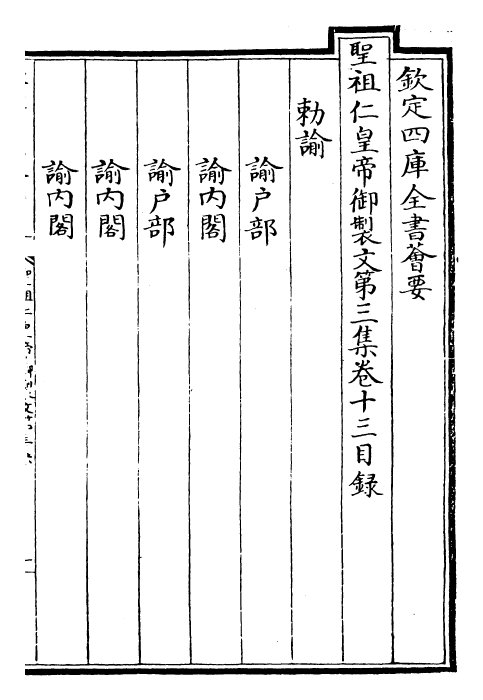 欽定四庫全書薈要
聖祖仁皇帝御製文第三集卷十三目録
勅諭
諭户部
諭内閣
諭户部
諭内閣
諭内閣